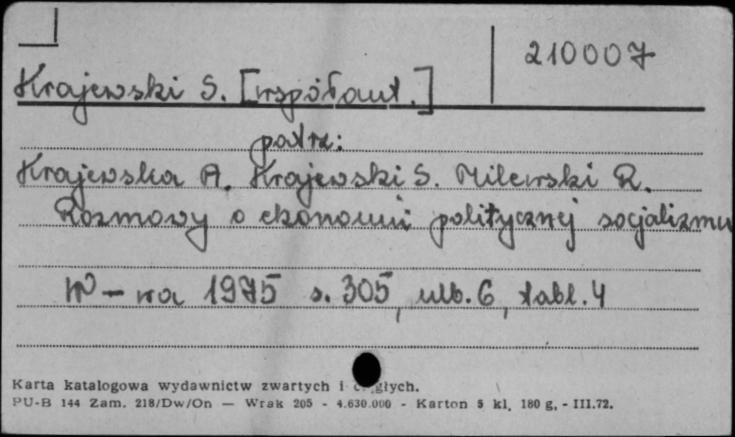 210007
Krajewski S. [współaut.]
patrz:
Krajewska A. Krajewski S. Milewski R.
Rozmowy o ekonomii politycznej socjalizmu
W-wa 1975 s. 305, ulb. 6, tabl. 4
Karta katalogowa wydawnictw zwartych i
PU-B 144 Zam. 218/Dw/On — Wrak 205 - 4.630.000 - Karton 5 kl. 180 g. - III.72.